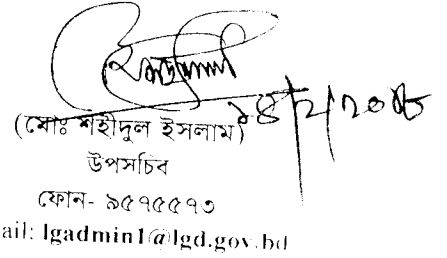 ১৪/২/২০১৮
(মোঃ শহীদুল ইসলাম)
উপসচিব
ফোন- ৯৫৭৫৫৭৩
ail: lgadmin1@lgd.gov.bd